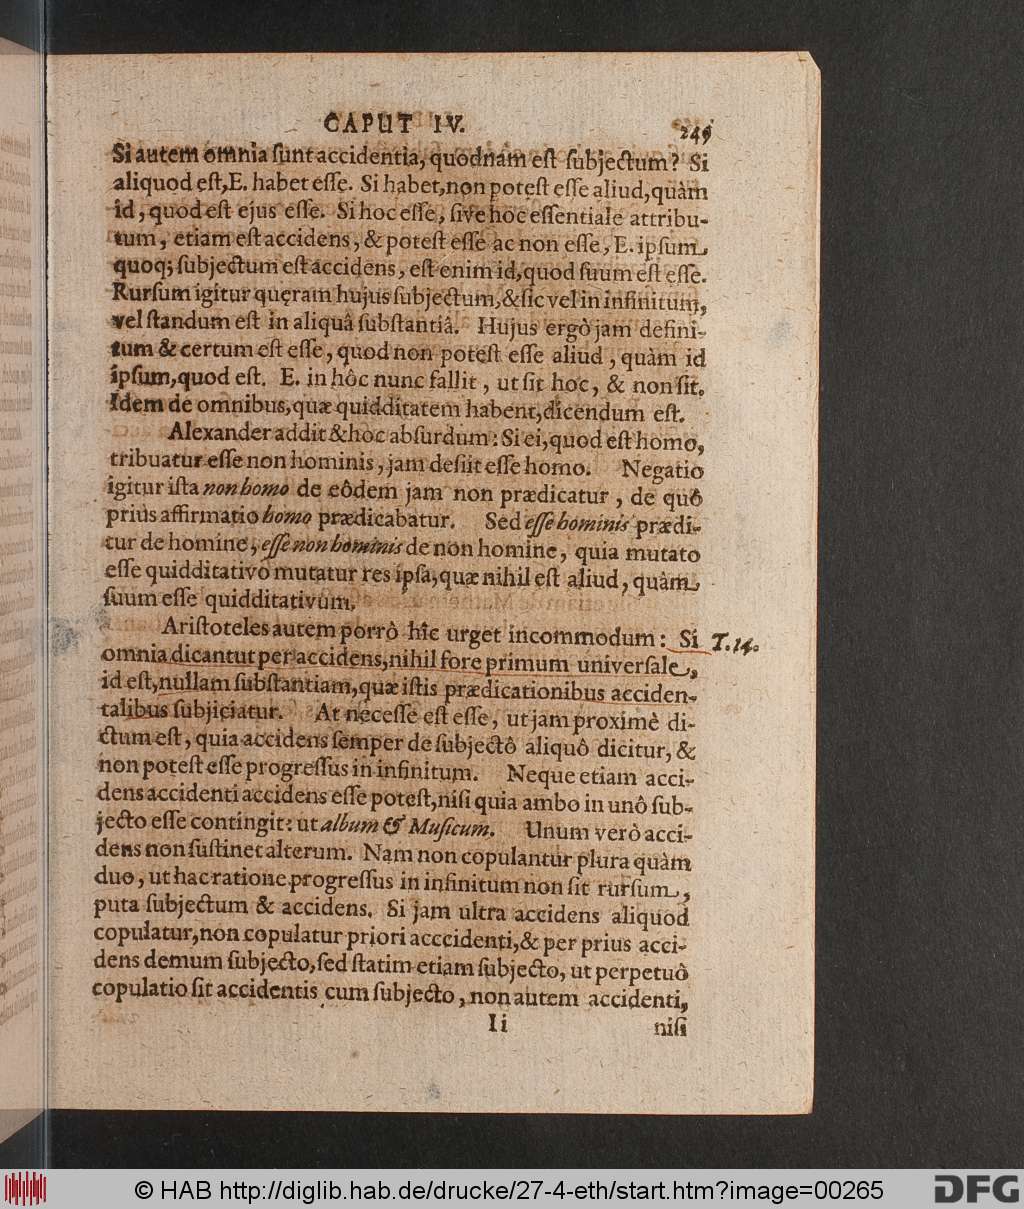 CAPUT IV.
249
Si autem omnia ſunt accidentia, quodnam eſt ſubjectum? Si
aliquod eſt, E. habet eſſe. Si habet, non poteſt eſſe aliud, quàm
id, quod eſt ejus eſſe. Si hoc eſſe, ſive hoc eſſentiale attribu-
tum, etiam eſt accidens, & poteſt eſſe ac non eſſe, E. ipſum
quoq; ſubjectum eſt accidens, eſt enim id, quod ſuum eſt eſſe.
Rurſum igitur quęram hujus ſubjectum, & ſic vel in infinitum,
vel ſtandum eſt in aliquâ ſubſtantiâ. Hujus ergò jam defini-
tum & certum eſt eſſe, quod non poteſt eſſe aliud, quàm id
ipſum, quod eſt. E. in hôc nunc fallit, ut ſit hoc, & non ſit.
Idem de omnibus, quæ quidditatem habent, dicendum eſt.
Alexander addit & hòc abſurdum: Si ei, quod eſt homo,
tribuatur eſſe non hominis, jam deſiit eſſe homo. Negatio
igitur iſta non homo de eôdem jam non prædicatur, de quô
priùs affirmatio homo prædicabatur. Sed eſſe hominis prædi-
tur de homine, eſſe non hominis de non homine, quia mutato
eſſe quidditativo mutatur res ipſa, quæ nihil eſt aliud, quàm
ſuum eſſe quidditativum.
Ariſtoteles autem porrò hîc urget incommodum: Si T. 14.
omnia dicantut per accidens, nihil fore primum univerſale,
id eſt, nullam ſubſtantiam, quæ iſtis prædicationibus acciden-
talibus ſubjiciatur. At neceſſe eſt eſſe, ut jam proximè di-
ctum eſt, quia accidens ſemper de ſubjectô aliquô dicitur, &
non poteſt eſſe progreſſus in infinitum. Neque etiam acci-
dens accidenti accidens eſſe poteſt, niſi quia ambo in unô ſub-
jecto eſſe contingit: ut album & Muſicum. Unum verò acci-
dens non ſuſtinet alterum. Nam non copulantur plura quàm
duo, ut hac ratione progreſſus in infinitum non ſit rurſum,
puta ſubjectum & accidens. Si jam ultra accidens aliquod
copulatur, non copulatur priori acccidenti, & per prius acci-
dens demum ſubjecto, ſed ſtatim etiam ſubjecto, ut perpetuô
copulatio ſit accidentis cum ſubjecto, non autem accidenti,
Ii
niſi
© HAB http://diglib.hab.de/drucke/27-4-eth/start.htm?image=00265
DFG